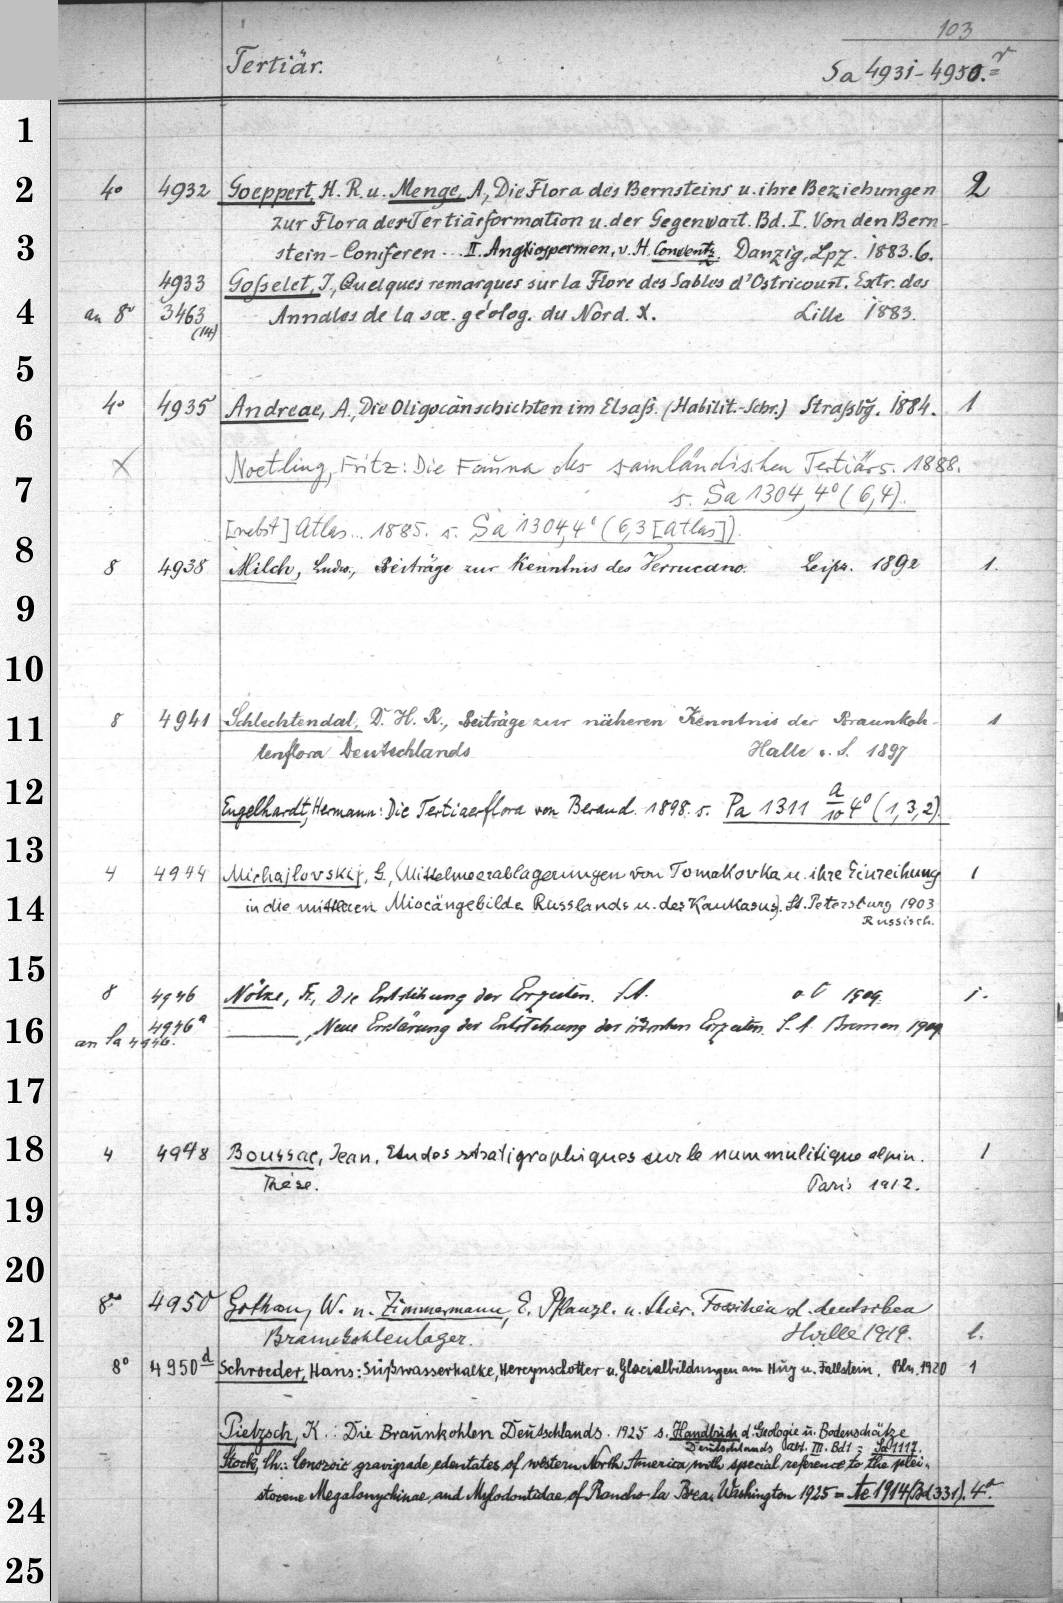 103
Tertiär. Sa 4931-4950.r
1
2 4o 4932 Goeppert, H. R. u. Menge, A., Die Flora des Bernsteins u. ihre Beziehungen 2
zur Flora der Tertiärformation u. der Gegenwart. Bd. I. Von den Bern-
3 stein-Coniferen... II. Angiospermen, v. H. Conventz. Danzig, Lpz. 1883.6.
4933 Gosselet, J., Quelques remarques sur la Flore des Sables d'Ostricourt. Extr. des
4 an 8o 3463 Annales de la soc. géolog. du Nord. X. Lille 1883.
(14)
5
4o 4935 Andreae, A., Die Oligocänschichten im Elsaß. (Habilit.-Schr.) Straßbg. 1884. 1
6
X Noetling, Fritz: Die Fauna des samländischen Tertiärs. 1888.
7 s. Sa 1304, 4o (6,4).
[nebst] Atlas... 1885. s. Sa 1304, 4o (6,3 [Atlas])
8 8 4938 Milch, Ludw., Beiträge zur Kenntnis des Verrucano. Leipz. 1892 1.
9
10
11 8 4941 Schlechtendal, D. H. R., Beiträge zur näheren Kenntnis der Braunkoh- 1
lenflora Deutschlands Halle a. S. 1897
12 Engelhardt, Hermann: Die Tertiaerflora von Berand. 1898. s. Pa 1311 a/10 4o (1,3,2)
13
4 4944 Michajlovskij, G., (Mittelmeerablagerungen von Tomakovka u. ihre Einreihung 1
14 in die mittleren Miocängebilde Russlands u. des Kaukasus). St. Petersburg 1903
Russisch.
15
8 4946 Nölke, Fr., Die Entstehung der Eiszeiten. S.A. o O 1909. 1.
16 4946a ———, Neue Erklärung der Entstehung der irdischen Eiszeiten. S. A. Bremen 1909
an Sa 4946.
17
18 4 4948 Boussac, Jean, Etudes stratigraphiques sur le nummulitique alpin. 1
Thèse. Paris 1912.
19
20
8o 4950 Gothan, W. u. Zimmermann, E. Pflanzl. u. tier. Fossilien d. deutschen
21 Braunkohlenlager. Halle 1919. 1.
8o 4950d Schroeder, Hans: Süßwasserkalke, Hercynschotter u. Glacialbildungen am Huy u. Fallstein. Bln. 1920 1
22
Pietzsch, K.: Die Braunkohlen Deutschlands. 1925 s. Handbuch d. Geologie u. Bodenschätze
23 Deutschlands Abt. III. Bd 1 = Sa 1117.
Stock, Ch.: Cenozoic gravigrade edentates of western North America with special reference to the plei-
24 stocene Megalonychinae and Mylodontidae of Rancho la Brea. Washington 1925 = Ae 1914 (Bd 331). 4o.
25